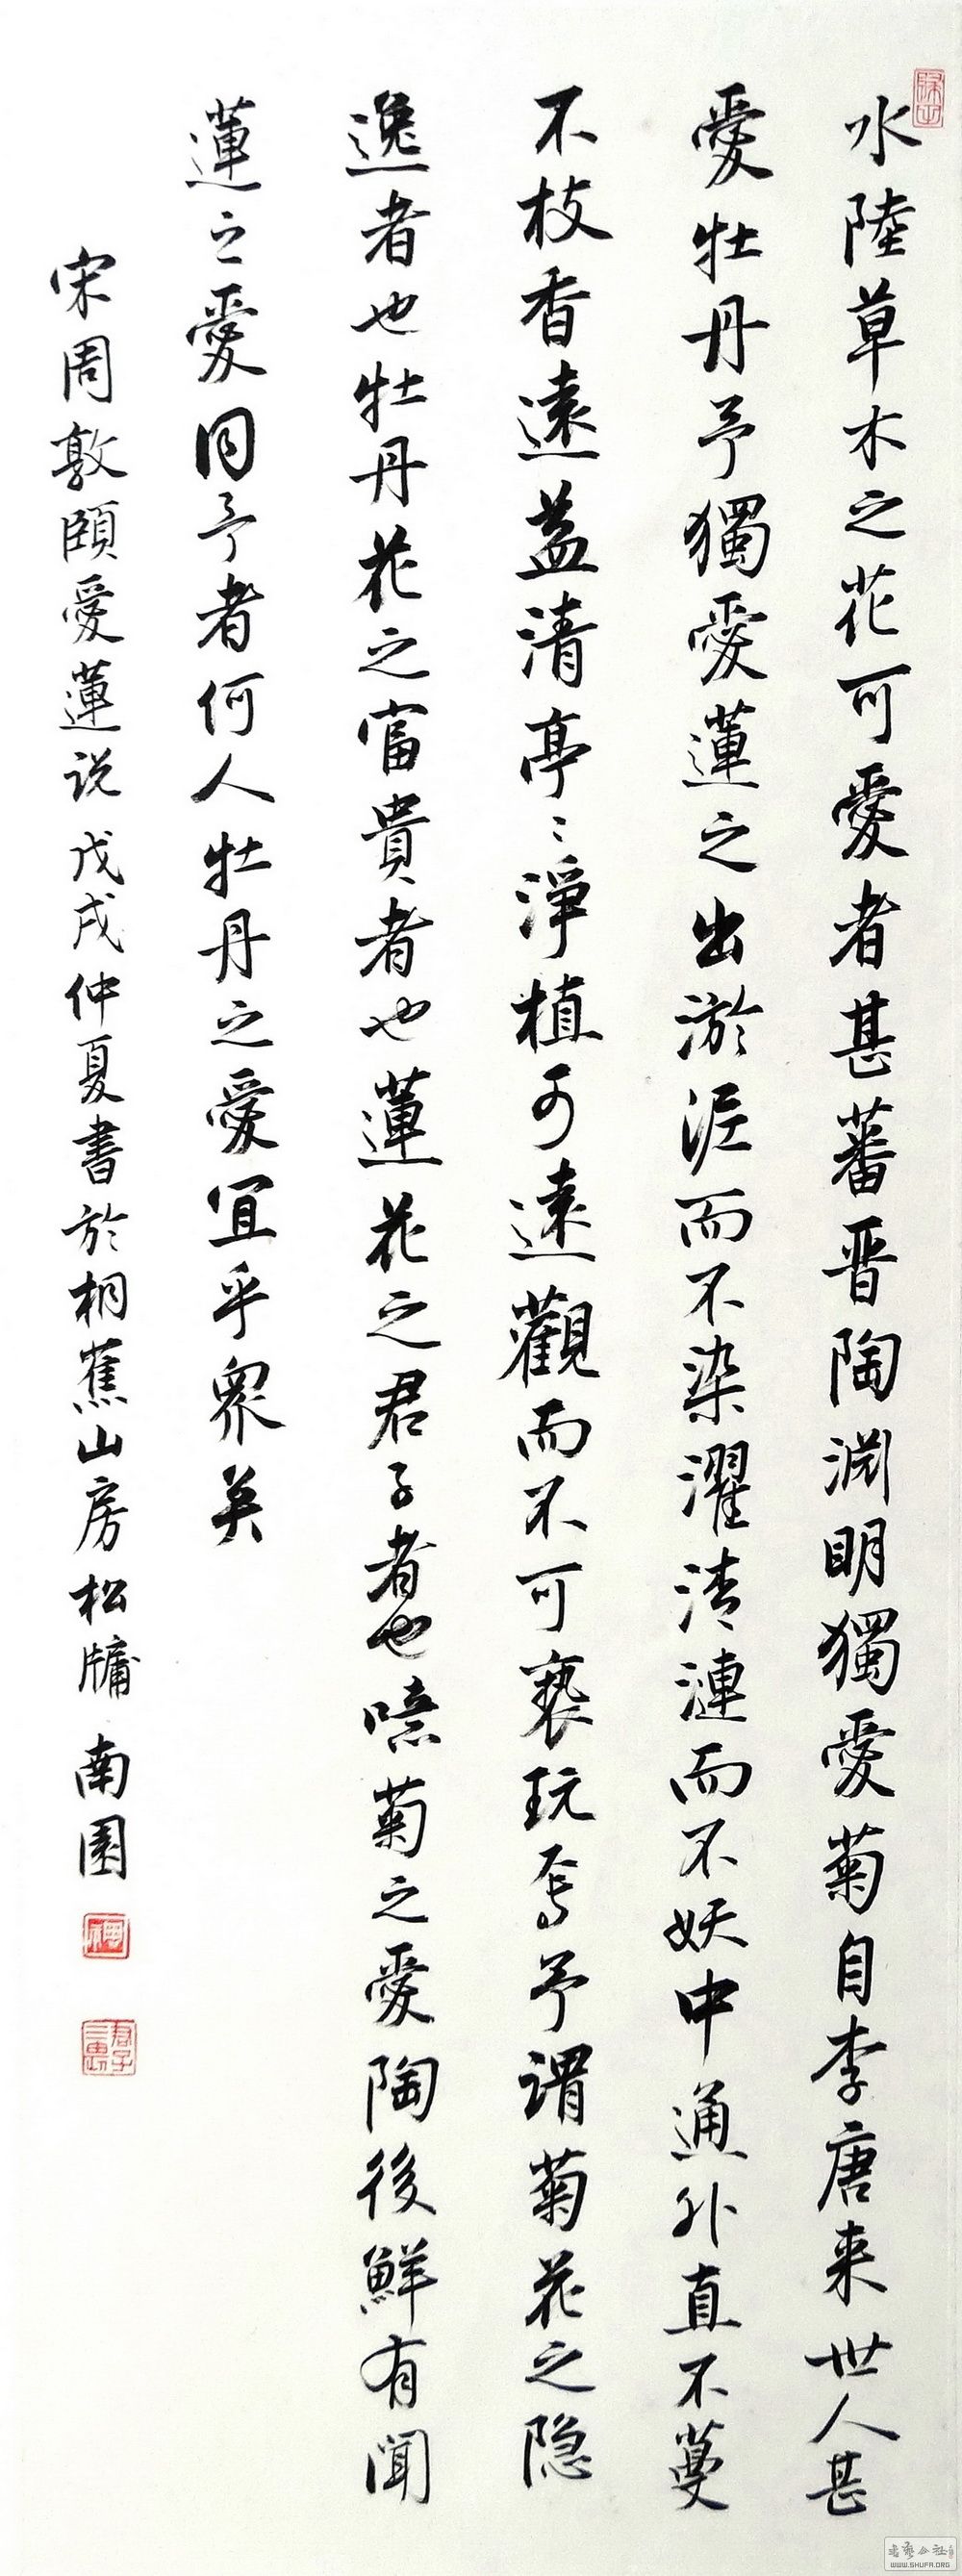 水陸草木之花可愛者甚蕃晋陶渊明獨愛菊自李唐来世人甚
愛牡丹予獨愛蓮之出淤泥而不染濯清漣而不妖中通外直不蔓
不枝香遠益清亭〻淨植可遠觀而不可褻玩焉予謂菊花之隐
逸者也牡丹花之富貴者也蓮花之君子者也噫菊之愛陶後鮮有聞
蓮之愛同予者何人牡丹之愛宜乎眾矣
宋周敦頤愛蓮说 戊戌仲夏書於桐蕉山房松牖 南園
WWW.SHUFA.ORG